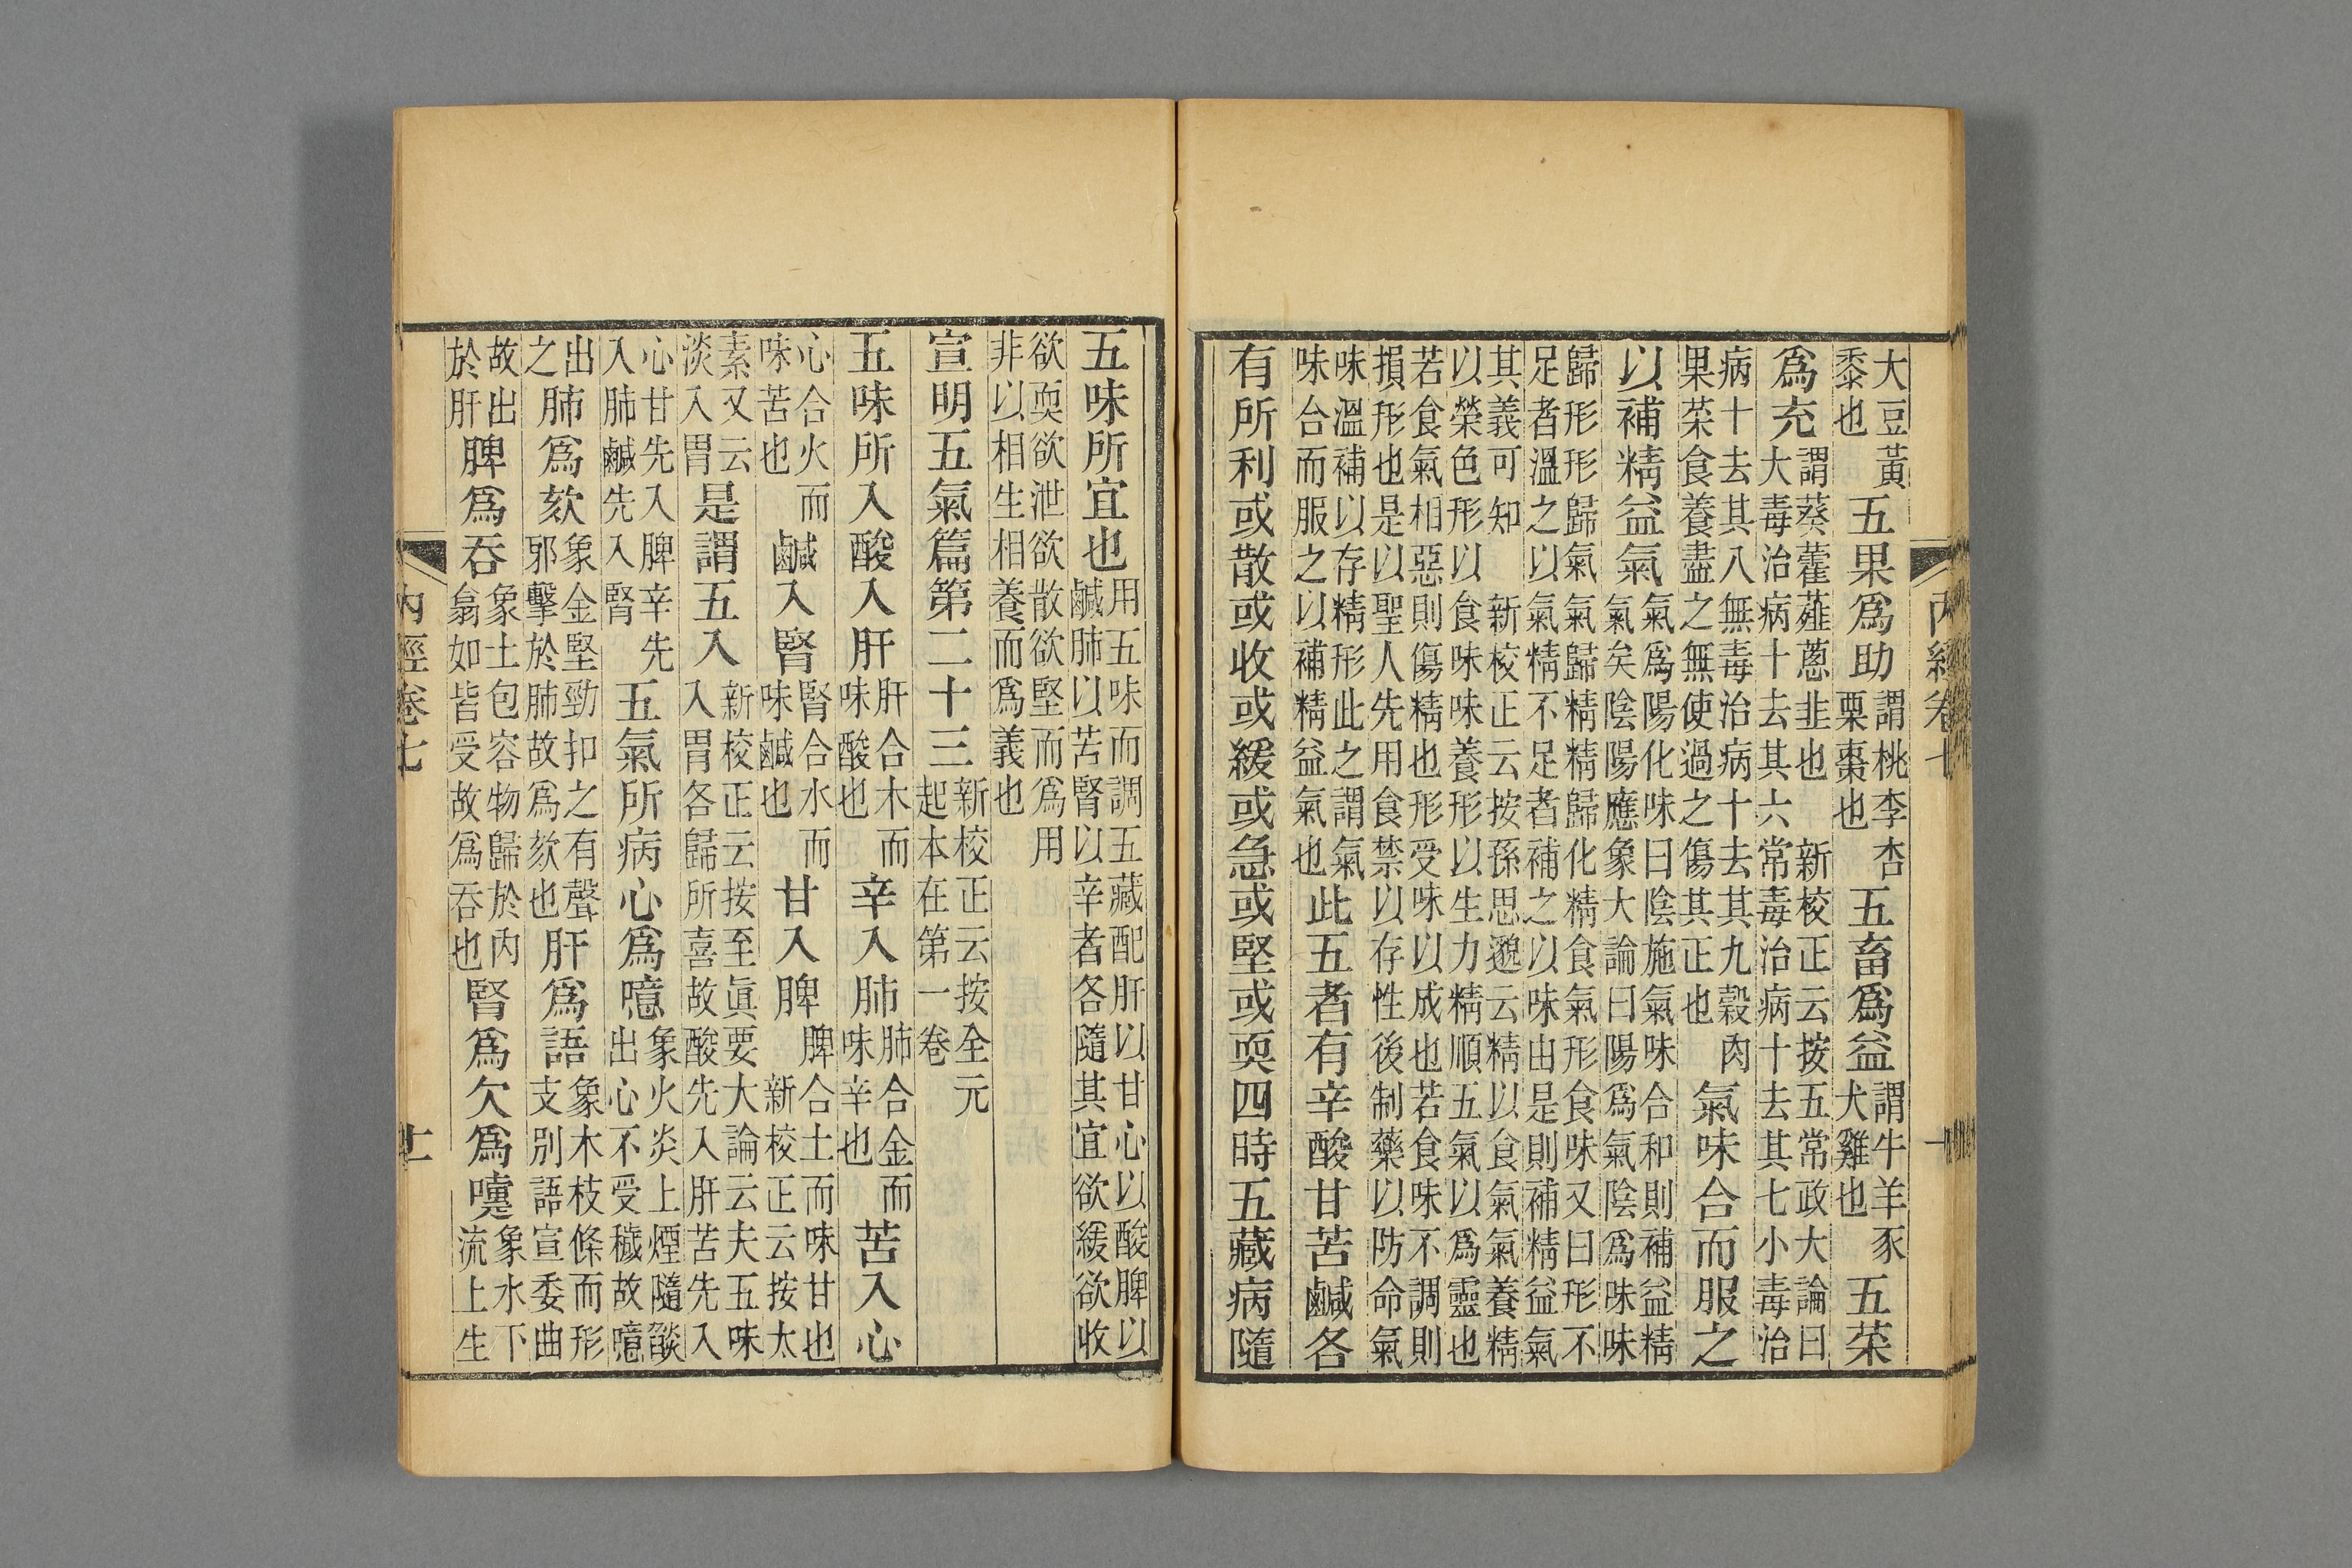 大豆黃黍也五果爲助謂桃李杏栗棗也五畜爲益謂牛羊豕犬雞也五菜
爲充謂葵藿薤蔥韭也 新校正云按五常政大論曰大毒治病十去其六常毒治病十去其七小毒治
病十去其八無毒治病十去其九穀肉果菜食養盡之無使過之傷其正也氣味合而服之
以補精益氣氣爲陽化味曰陰施氣味合和則補益精氣矣陰陽應象大論曰陽爲氣陰爲味味
歸形形歸氣氣歸精精歸化精食氣形食味又曰形不足者溫之以氣精不足者補之以味由是則補精益氣
其義可知 新校正云按孫思邈云精以食氣氣養精以榮色形以食味味養形以生力精順五氣以爲靈也
若食氣相惡則傷精也形受味以成也若食味不調則損形也是以聖人先用食禁以存性後制藥以防命氣
味溫補以存精形此之謂氣味合而服之以補精益氣也此五者有辛酸甘苦鹹各
有所利或散或收或緩或急或堅或耎四時五藏病隨
五味所宜也用五味而調五藏配肝以甘心以酸脾以鹹肺以苦腎以辛者各隨其宜欲緩欲收
欲耎欲泄欲散欲堅而爲用非以相生相養而爲義也
宣明五氣篇第二十三新校正云按全元起本在第一卷
五味所入酸入肝肝合木而味酸也辛入肺肺合金而味辛也苦入心
心合火而味苦也鹹入腎腎合水而味鹹也甘入脾脾合土而味甘也 新校正云按太
素又云淡入胃是謂五入新校正云按至眞要大論云夫五味入胃各歸所喜故酸先入肝苦先入
心甘先入脾辛先入肺鹹先入腎五氣所病心爲噫象火炎上煙隨燄出心不受穢故噫
出之肺爲欬象金堅勁扣之有聲邪擊於肺故爲欬也肝爲語象木枝條而形支別語宣委曲
故出於肝脾爲吞象土包容物歸於內翕如皆受故爲吞也腎爲欠爲嚏象水下流上生
內經卷七 十一